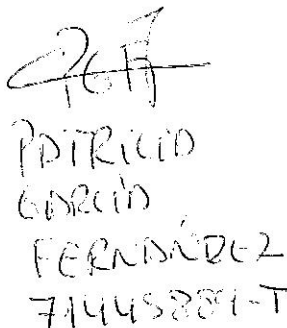 PATRICIA
GARCIA
FERNÁNDEZ
71445889-T